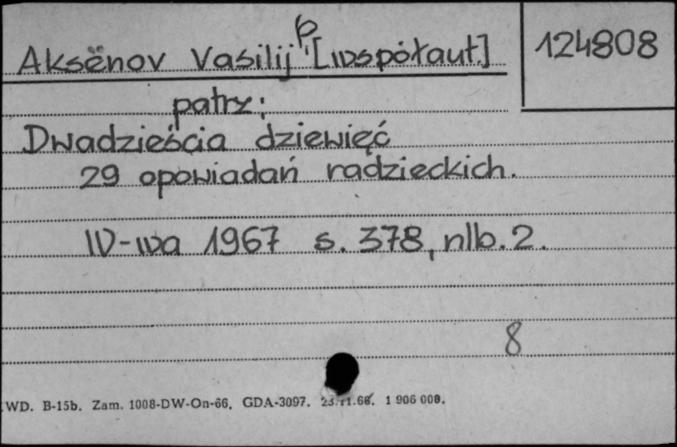 Aksënov Vasilij [współaut.]
124808
patrz:
Dwadzieścia dziewięć
29 opowiadań radzieckich.
W-wa 1967 s. 378, nlb. 2.
8
WD. B-15b. Zam. 1008-DW-On-66. GDA-3097. 23.11.66. 1 906 000.